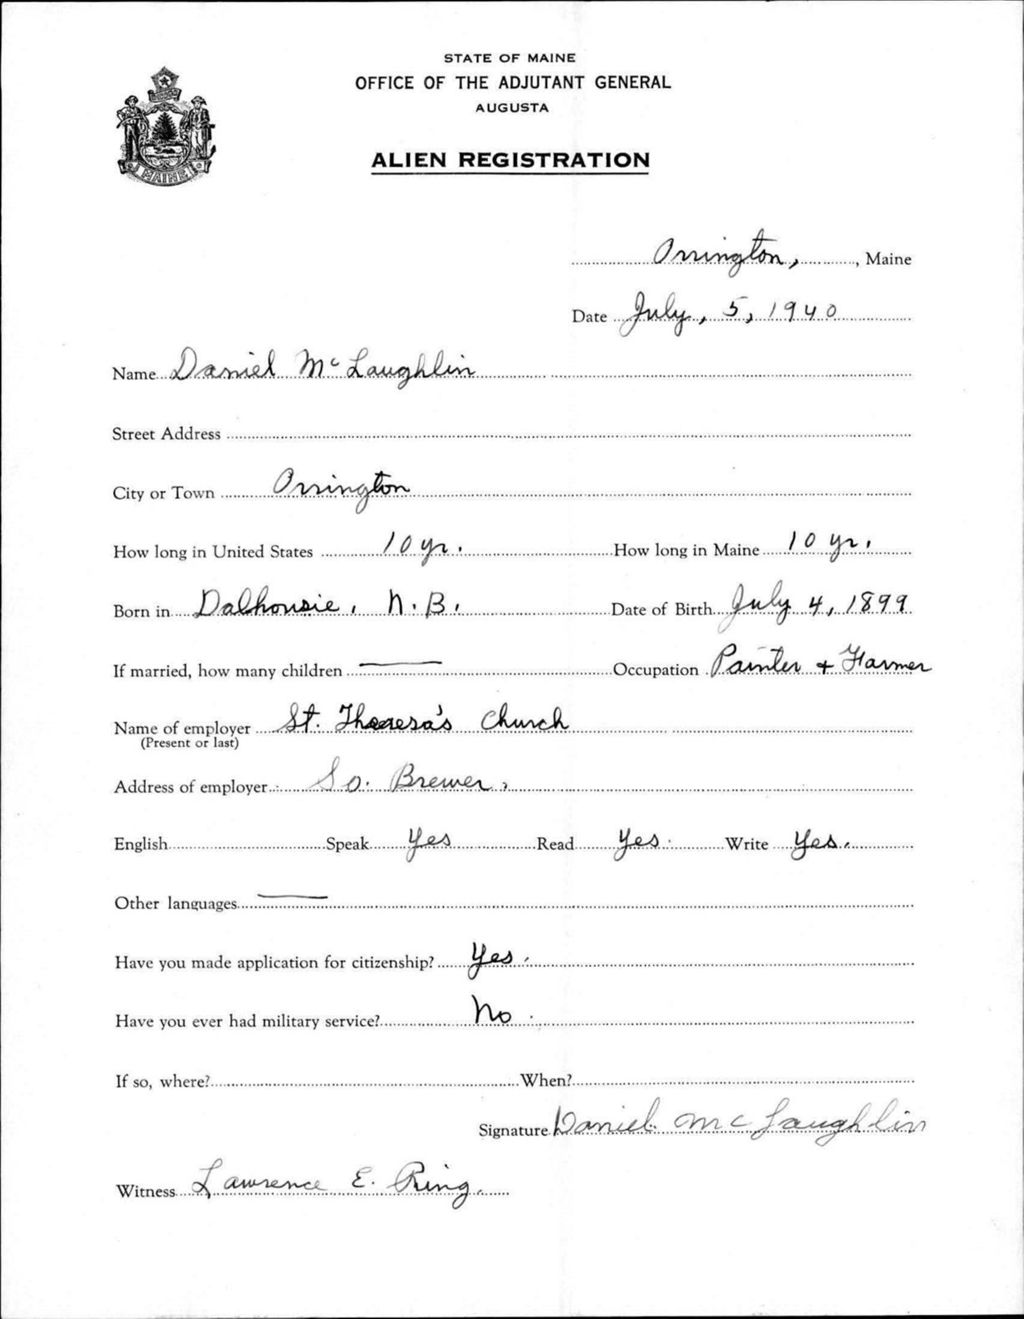 STATE OF MAINE
OFFICE OF THE ADJUTANT GENERAL
AUGUSTA
ALIEN REGISTRATION
MAINE
Orrington, , Maine
Date July, 5, 1940
Name Daniel McLaughlin
Street Address
City or Town Orrington
How long in United States 10 yr. How long in Maine 10 yr.
Born in Dalhousie, N.B. Date of Birth July 4, 1899
If married, how many children — Occupation Painter + Farmer
Name of employer St. Theresa's Church
(Present or last)
Address of employer So. Brewer,
English Speak Yes Read Yes. Write Yes.
Other languages —
Have you made application for citizenship? Yes.
Have you ever had military service? No.
If so, where? When?
Signature Daniel McLaughlin
Witness Lawrence E. Ring.